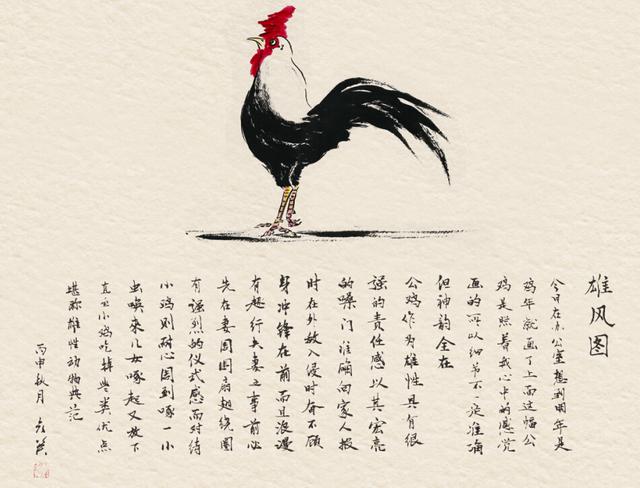 雄风图
今日在办公室想到明年是
鸡年就画了上面这幅公
鸡是照着我心中的感觉
画的所以细节不一定准确
但神韵全在
公鸡作为雄性具有很
强的责任感以其宏亮
的嗓门准确向家人报
时在外敌入侵时奋不顾
身冲锋在前而且浪漫
有趣行夫妻之事前必
先在妻周围扇翅绕圈
有强烈的仪式感而对待
小鸡则耐心周到啄一小
虫唤来儿女啄起又放下
直至小鸡吃掉典类优点
堪称雄性动物典范
丙申秋月